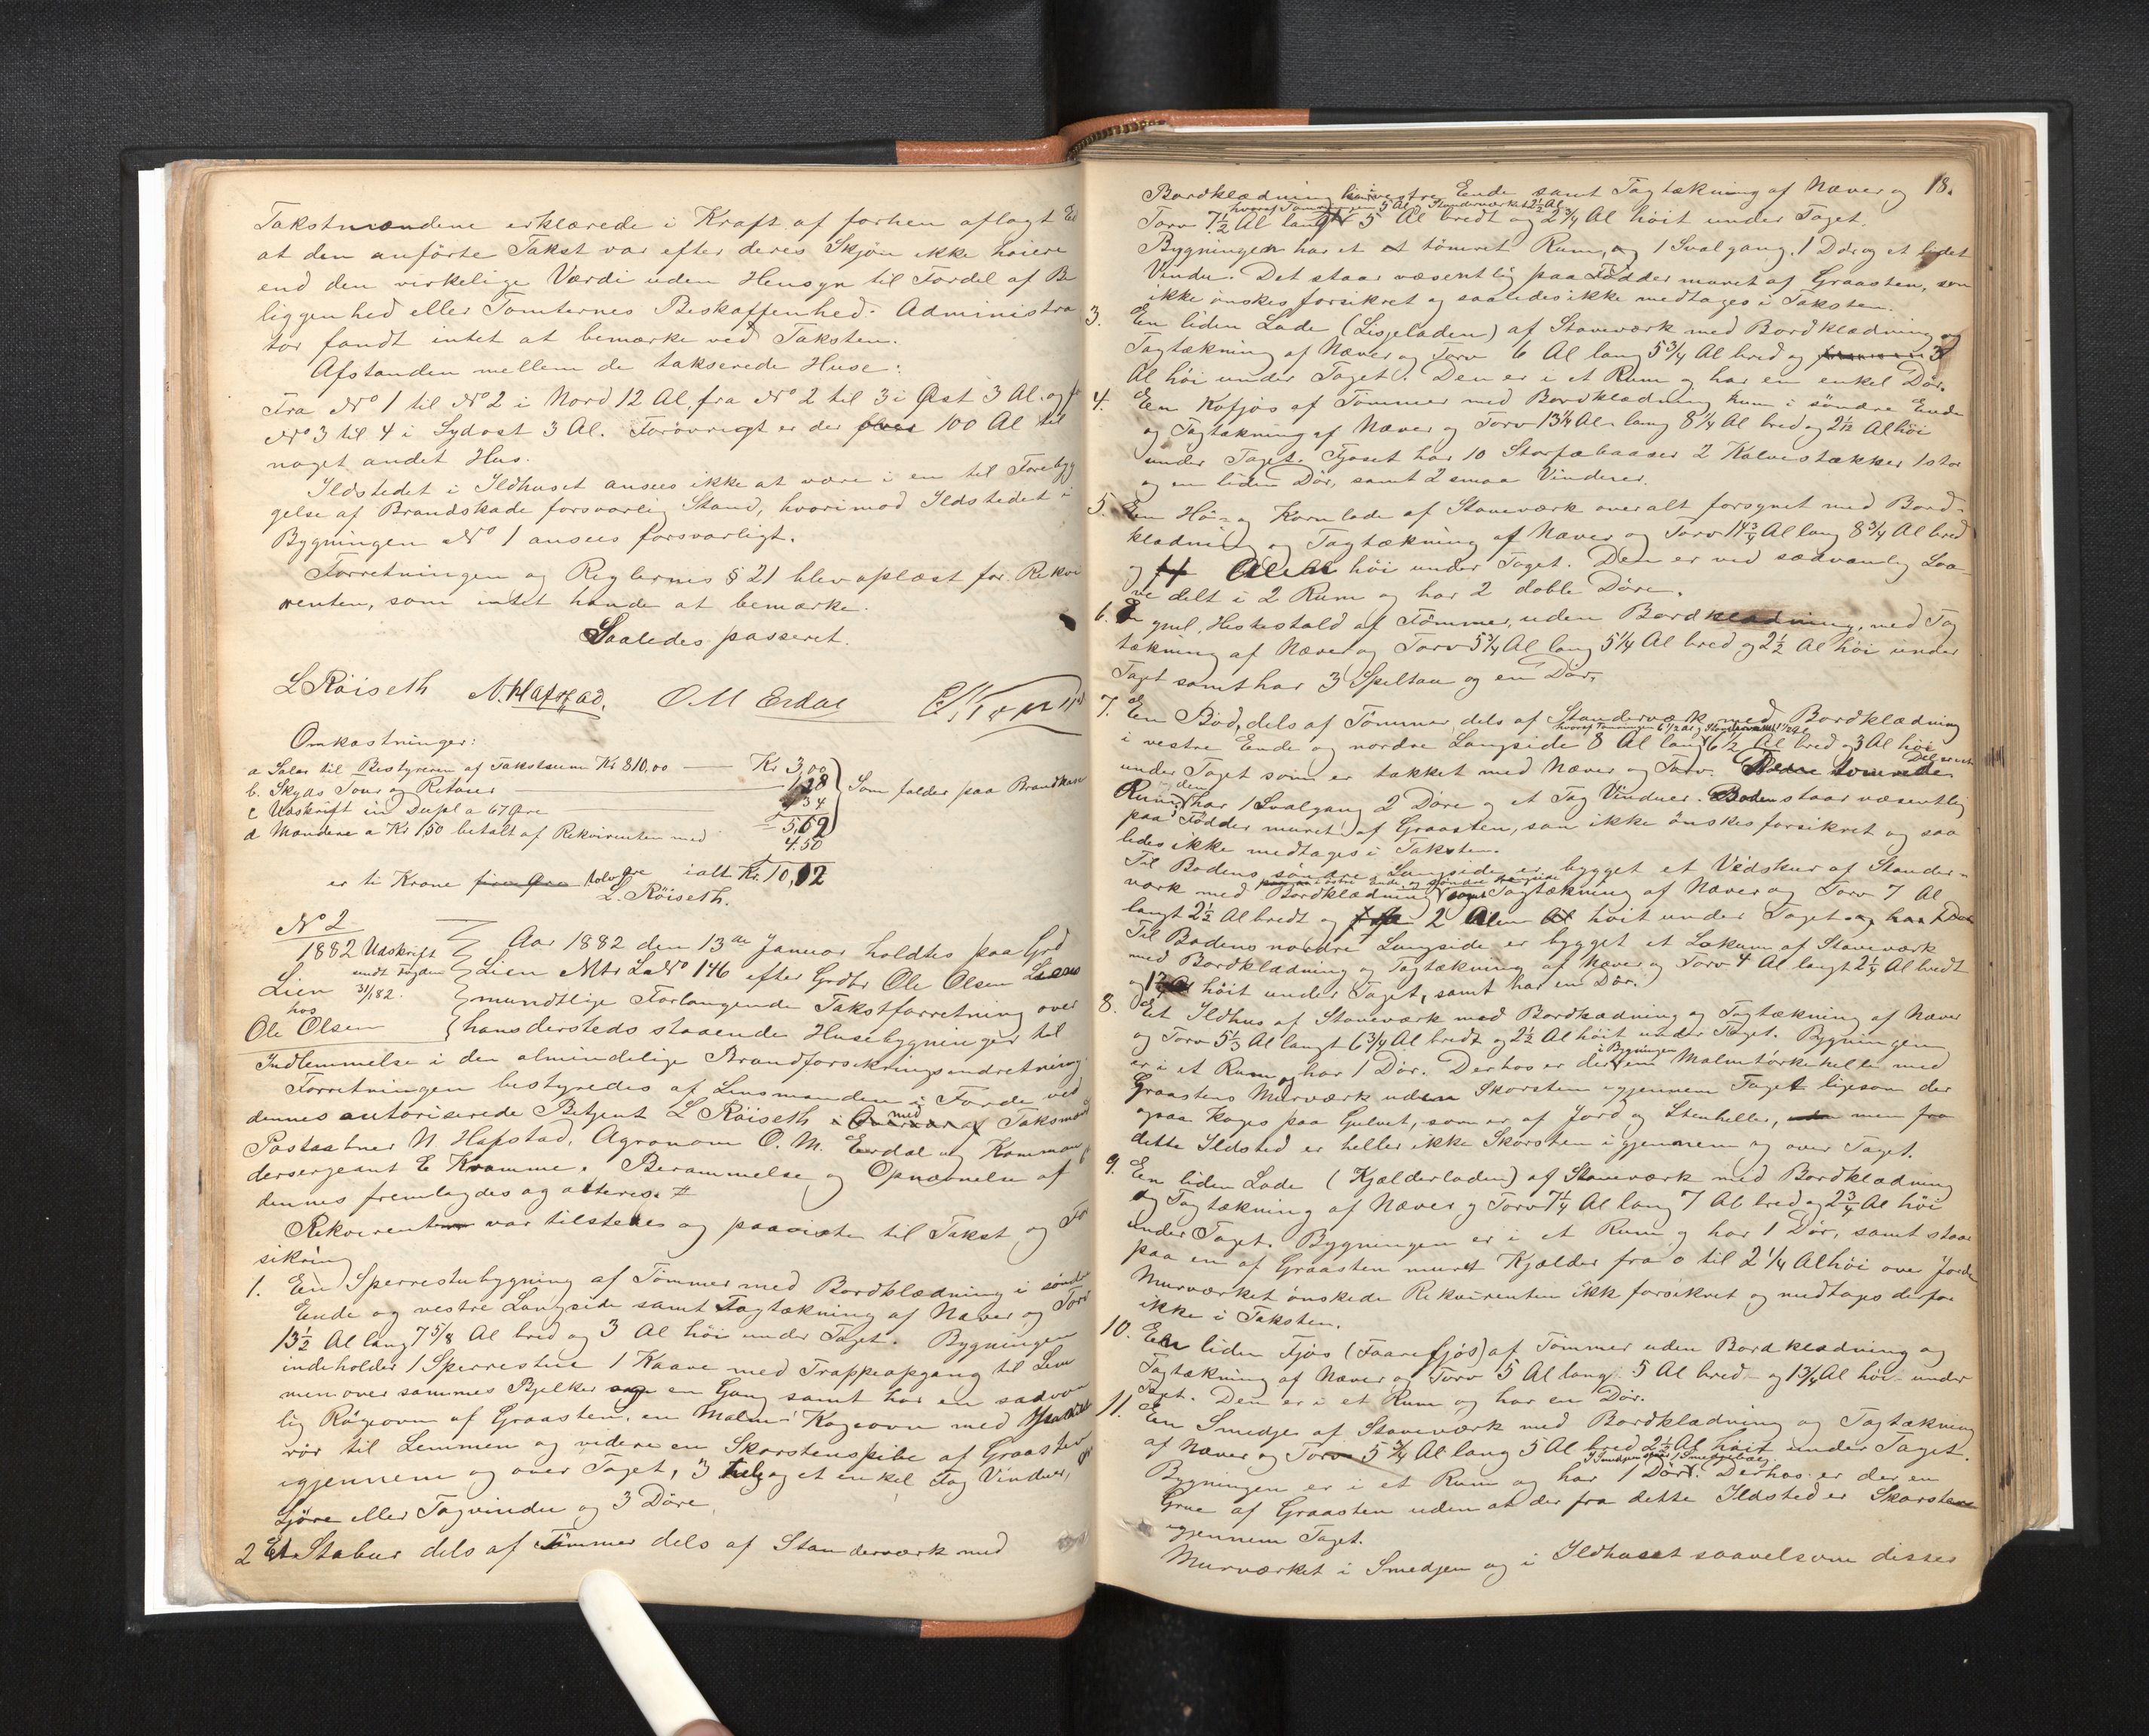 Takstmændene erklærede i Kraft af forhen aflagt Ed
at den anförte Takst var efter deres Skjön ikke höiere
end den virkelige Værdi uden Hensyn til Fordel af Be
liggenhed eller Tomternes Beskaffenhed. Administra
tor fandt intet at bemærke ved Taksten.
Afstanden mellem de takserede Huse:
Fra No 1 til No 2 i Nord 12 Al. fra No 2 til 3 i Øst 3 Al. og fr
No 3 til 4 i Sydost 3 Al. Forövrigt er der over 100 Al til
noget andet Hus.
Ildstedet i Ildhuset ansees ikke at være i en til Forebyg
gelse af Brandskade forsvarlig Stand, hvorimod Ildstedet i
Bygningen No 1 ansees forsvarligt.
Forretningen og Reglernes § 21 blev oplæst for Rekvi
renten, som intet havde at bemærke.
Saaledes passeret.
L Röiseth N. Hafstad. O M Erdal
Omkostninger:
a Salær til Bestyreren af Takstsum Kr 810,00 — Kr 3,00
b. Skyds Tour og Retour 1,28
c Udskrift in Dupl a 67 Øre 1,34
Som falder paa Brandkas
5,62
d Mændene a Kr 1,50 betalt af Rekvirenten med 4.50
er ti Krone fire Øre tolv Øre ialt Kr. 10,12
L. Röiseth.
No 2
1882 Udskrift
sendt Fogden
Lien 31/1 82.
hos
Ole Olsen
Aar 1882 den 13de Januar holdtes paa Grd
Lien Mtr LNo 146 efter Grdbr Ole Olsen Liens
mundtlige Forlangende Takstforretning over
hans dersteds staaende Husebygninger til
Indlemmelse i den almindelige Brandforsikringsindretning
Forretningen bestyredes af Lensmanden i Förde ved
dennes autoriserede Betjent L Röiseth i Overvær af med Taksmænd
Postaabner N. Hafstad, Agronom O. M. Eerdal og Komman
dersergeant E Kramme. Berammelse og Opnævnelse af
dennes fremlagdes og atteres.
Rekvirenten var tilstedes og paaviste til Takst og For
sikring
1. En Sperrestubygning af Tömmer med Bordklædning i söndre
Ende og vestre Langside samt Tagtækning af Næver og Torv
13½ Al lang 7 5/8 Al bred og 3 Al höi under Taget. Bygningen
indeholder 1 Sperrestue 1 Kaave med Trappeopgang til Lem
men over sammes Bjelker og en Gang samt har en sædvan
lig Rögovn af Graasten, en Malm-Kogeovn med
rör til Lemmen og videre en Skorstenspibe af Graasten
igjennem og over Taget, 3 hele og et enkel Fag Vinduer,
Ljöre eller Tagvindu og 3 Döre.
2 Et Stabur dels af Tömmer dels af Standerværk med
18.
Bordklædning i vestre Ende samt Tagtækning af Næver og
hvoraf Tömringen 5 Al og Standerværket 2½ Al
Torv 7½ Al langt 5 Al bredt og 2¾ Al höit under Taget.
Bygningen har et et tömret Rum, og 1 Svalgang, 1 Dör og et lidet
Vindu. Det staar væsentlig paa Födder muret af Graasten, som
ikke önskes forsikret og saaledes ikke medtages i Taksten.
3. En liden Lade (Lisjeladen) af Staveværk med Bordklædning og
Tagtækning af Næver og Torv 6 Al lang 5¾ Al bred og 3
Al höi under Taget. Den er i et Rum og har en enkel Dör.
4. En Kofjös af Tömmer med Bordklædning kun i söndre Ende
og Tagtækning af Næver og Torv 13¼ Al lang 8¼ Al bred og 2½ Al höi
under Taget. Fjöset har 10 Storfæbaaser 2 Kalvestækker 1 stor
og en liden Dör, samt 2 smaa Vinduer.
5. En Hö- og Kornlade af Staveværk overalt forsynet med Bord-
klædning og Tagtækning af Næver og Torv 14¾ Al lang 8¾ Al bred
og Alen höi under Taget. Den er ved sædvanlig Loa-
ve delt i 2 Rum og har 2 doble Döre.
6. En gml. Hestestald af Tömmer, uden Bordklædning, med Tag
tækning af Næver og Torv 5¾ Al lang 5¼ Al bred og 2½ Al höi under
Taget samt har 3 Spiltau og en Dör.
7. En Bod, dels af Tömmer dels af Standerværk med Bordklædning
hvoraf Tömringen 6½ Al og Standerværket 1½ Al
i vestre Ende og nordre Langside 8 Al lang 6½ Al bred og 3 Al höi
under Taget som er takket med Næver og Torv. Dets tömrede
Rum den har 1 Svalgang 2 Döre og et Fag Vinduer. Boden staar væsentlig
paa Födder muret af Graasten, som ikke önskes forsikret og saa
ledes ikke medtages i Taksten.
Til Bodens söndre Langside er bygget et Vedskur af Stander-
værk med Bordklædning samt Tagtækning af Næver og Torv 7 Al
langt 2½ Al bredt og 2 Alen höit under Taget og har 1 Dör
Til Bodens nordre Langside er bygget et Lokum af Staveværk
med Bordklædning og Tagtækning af Næver og Torv 4 Al langt 2¼ Al bredt
og höit under Taget, samt har en Dör.
8. Et Ildhus af Staveværk med Bordklædning og Tagtækning af Næver
og Torv 5½ Al langt 6¾ Al bredt og 2½ Al höit under Taget. Bygningen
er i et Rum og har 1 Dör. Derhos er der i Bygningen en Malmtörkehelle med
Graastens Murværk uden Skorsten igjennem Taget ligesom der
ogsaa koges paa Gulvet, som er af Jord og Stenheller, men fra
dette Ildsted er heller ikke Skorsten igjennem og over Taget.
9. En liden Lade (Kjælderladen) af Staveværk med Bordklædning
og Tagtækning af Næver og Torv 7¼ Al lang 7 Al bred og 2¾ Al höi
under Taget. Bygningen er i et Rum og har 1 Dör, samt staar
paa en af Graasten muret Kjælder fra 0 til 2¼ Al höi over Jorden
Murværket önskede Rekvirenten ikke forsikret og medtages derfor
ikke i Taksten.
10. En liden Fjös (Faarefjös) af Tömmer uden Bordklædning og
Tagtækning af Næver og Torv 5 Al lang 5 Al bred og 1¾ Al höi under
Taget. Den er i et Rum og har en Dör.
11. En Smedje af Staveværk med Bordklædning og Tagtækning
af Næver og Torv 5¾ Al lang 5 Al bred 2½ Al höit under Taget.
Bygningen er i et Rum og har 1 Dör. Derhos er der en
Grue af Graasten uden at der fra dette Ildsted er Skorsten
igjennem Taget.
Murværket i Smedjen og i Ildhuset saavelsom disses